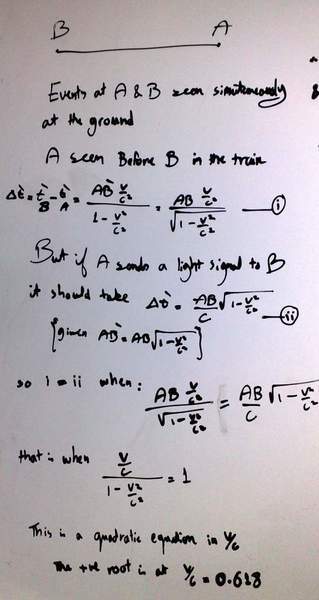 B A
Events at A & B seen simultaneously
at the ground
A seen Before B in the train
Δt̀ = t̀_B - t̀_A = AB̀ v/c² / 1 - v²/c² = AB v/c² / √1 - v²/c² — (i)
But if A sends a light signal to B
it should take Δt̀ = AB/c √1 - v²/c² — (ii)
[given AB̀ = AB √1 - v²/c²]
so i = ii when: AB v/c² / √1 - v²/c² = AB/c √1 - v²/c²
that is when v/c / 1 - v²/c² = 1
This is a quadratic equation in v/c
The +ve root is at v/c = 0.618